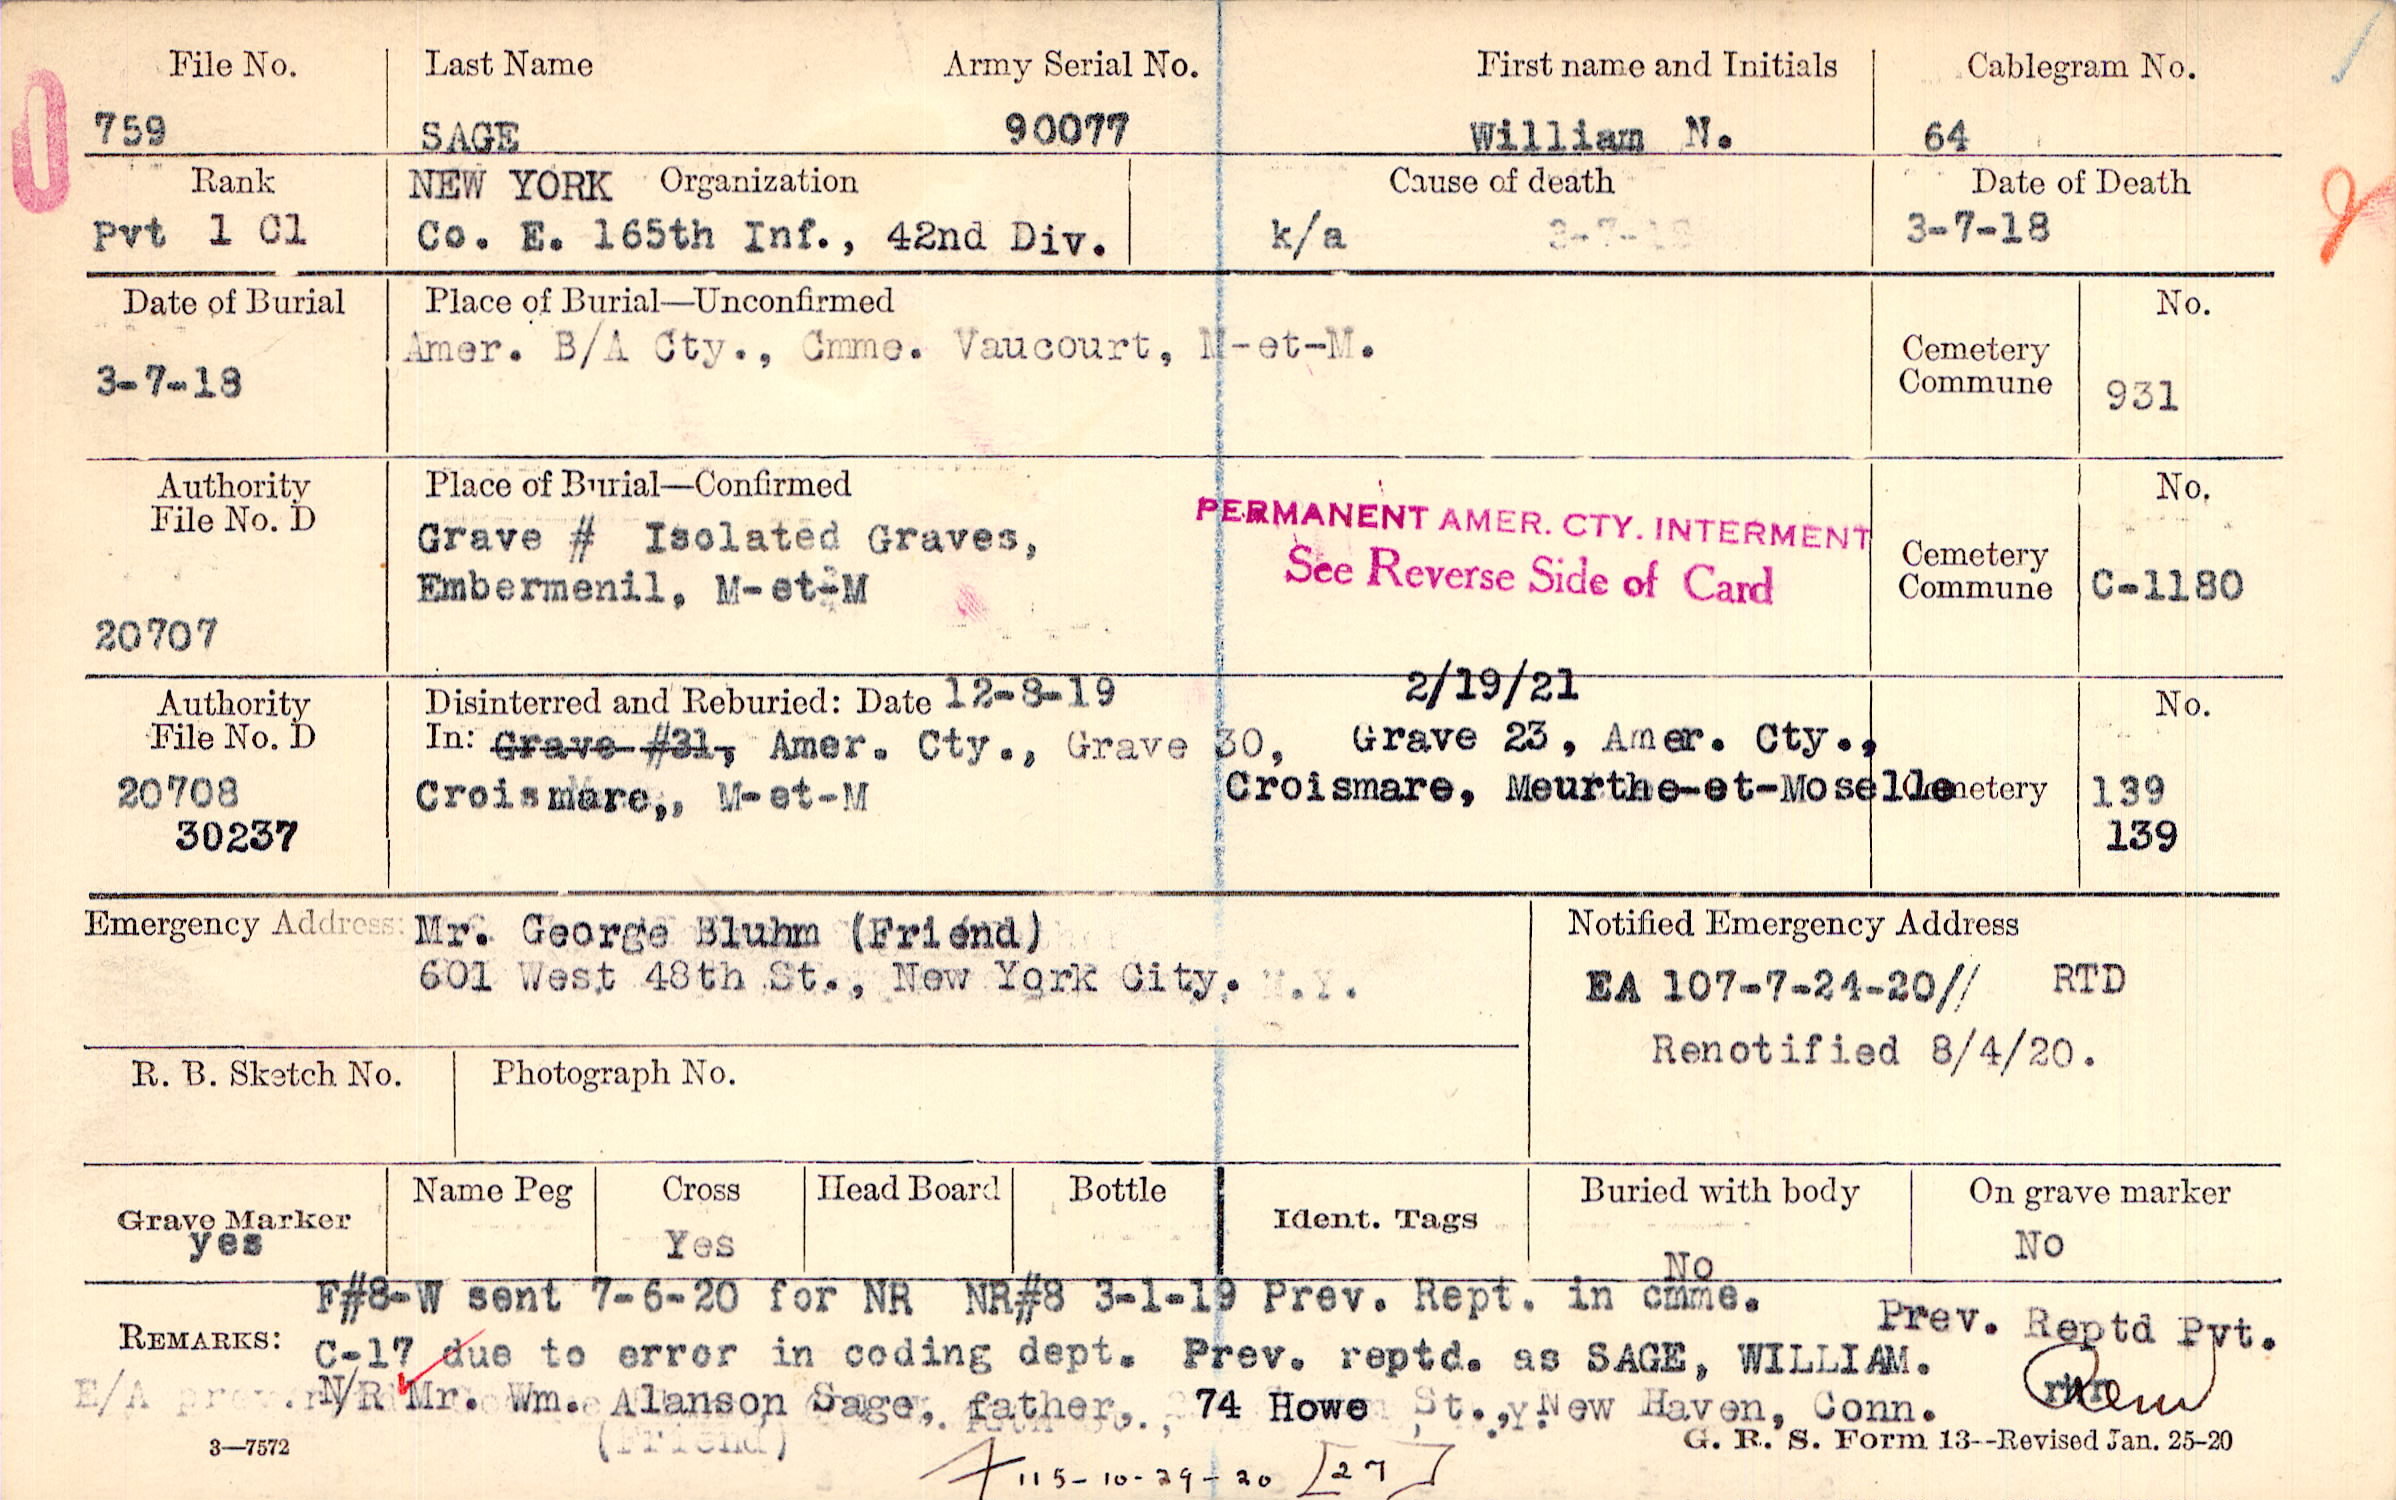 File No. Last Name Army Serial No. First name and Initials Cablegram No.
759 SAGE 90077 William N. 64
Rank NEW YORK Organization Cause of death Date of Death
Pvt 1 Cl Co. E. 165th Inf., 42nd Div. k/a 3-7-18 3-7-18
Date of Burial Place of Burial—Unconfirmed No.
Amer. B/A Cty., Cmme. Vaucourt, M-et-M. Cemetery
3-7-18 Commune 931
Authority Place of Burial—Confirmed No.
File No. D Grave # Isolated Graves, PERMANENT AMER. CTY. INTERMENT Cemetery
Embermenil, M-et-M See Reverse Side of Card Commune C-1180
20707
Authority Disinterred and Reburied: Date 12-8-19 2/19/21 No.
File No. D In: Grave #31, Amer. Cty., Grave 30, Grave 23, Amer. Cty.,
20708 Croismare,, M-et-M Croismare, Meurthe-et-Moselle Cemetery 139
30237 139
Emergency Address: Mr. George Bluhm (Friend) Notified Emergency Address
601 West 48th St., New York City. N.Y. EA 107-7-24-20// RTD
Renotified 8/4/20.
R. B. Sketch No. Photograph No.
Name Peg Cross Head Board Bottle Buried with body On grave marker
Grave Marker Ident. Tags
yes Yes No No
F#8-W sent 7-6-20 for NR NR#8 3-1-19 Prev. Rept. in cmme. Prev. Reptd Pvt.
REMARKS: C-17 due to error in coding dept. Prev. reptd. as SAGE, WILLIAM.
E/A N/R Mr. Wm. Alanson Sage, father, 74 Howe St., New Haven, Conn.
(Friend)
3—7572 G. R. S. Form 13--Revised Jan. 25-20
115-10-29-20 [27]